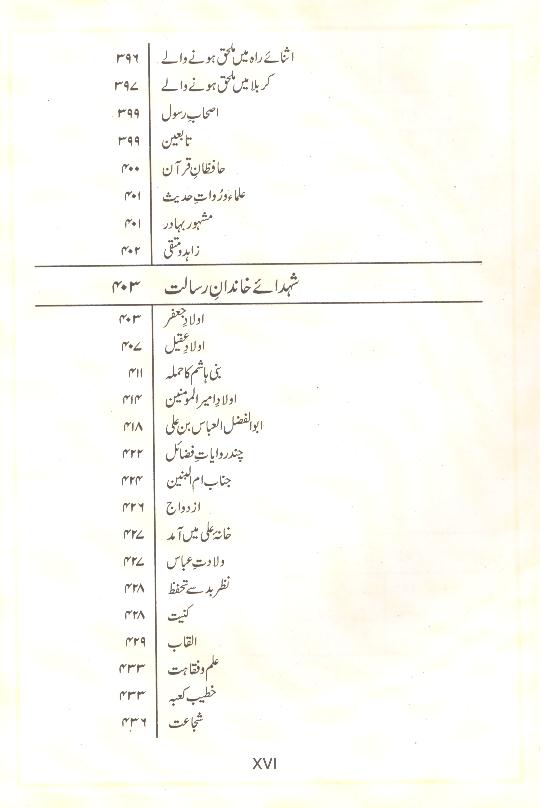 اثنائے راہ میں ملحق ہونے والے ۳۹۶
کربلا میں ملحق ہونے والے ۳۹۷
اصحابِ رسول ۳۹۹
تابعین ۳۹۹
حافظانِ قرآن ۴۰۰
علماء و رُواتِ حدیث ۴۰۱
مشہور بہادر ۴۰۱
زاہد و متقی ۴۰۲
شہدائے خاندانِ رسالت ۴۰۳
اولادِ جعفر ۴۰۳
اولادِ عقیل ۴۰۷
بنی ہاشم کا حملہ ۴۱۱
اولادِ امیر المومنین ۴۱۴
ابوالفضل العباس بن علی ۴۱۸
چند روایاتِ فضائل ۴۲۲
جناب ام البنین ۴۲۴
ازدواج ۴۲۶
خانۂ علی میں آمد ۴۲۷
ولادتِ عباس ۴۲۷
نظر بد سے تحفظ ۴۲۸
کنیت ۴۲۸
القاب ۴۲۹
علم و فقاہت ۴۳۳
خطیب کعبہ ۴۳۳
شجاعت ۴۳۶
XVI